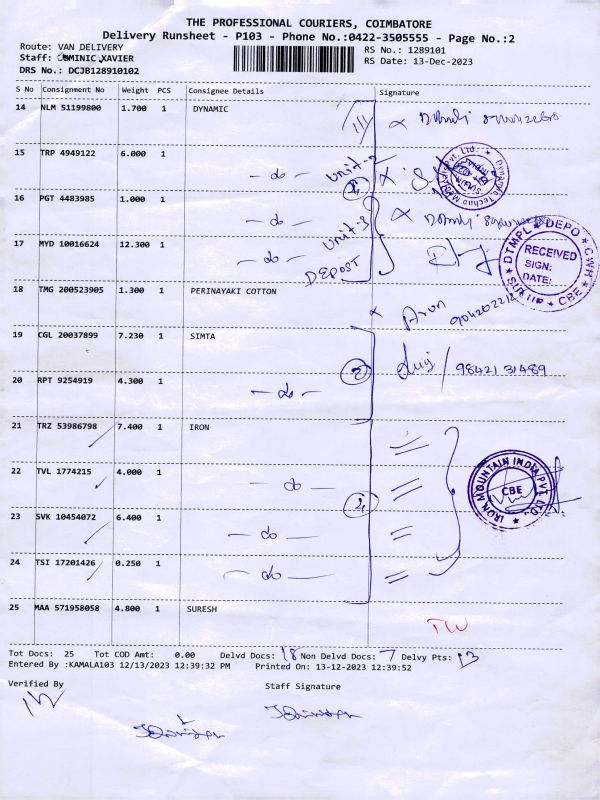 THE PROFESSIONAL COURIERS, COIMBATORE
Delivery Runsheet - P103 - Phone No.:0422-3505555 - Page No.:2
Route: VAN DELIVERY
RS No.: 1289101
Staff: DOMINIC XAVIER
RS Date: 13-Dec-2023
DRS No.: DCJB128910102
S No Consignment No Weight PCS Consignee Details Signature
14 NLM 51199800 1.700 1 DYNAMIC
15 TRP 4949122 6.000 1 -do- Unit-2
16 PGT 4483985 1.000 1 -do- Unit-3
17 MYD 10016624 12.300 1 -do- DEPOST
DTMPL * DEPO * CWH
RECEIVED
SIGN:
DATE:
CBE
18 TMG 200523905 1.300 1 PERINAYAKI COTTON
Arun
19 CGL 20037899 7.230 1 SIMTA
98421 31489
20 RPT 9254919 4.300 1 -do-
21 TRZ 53986798 7.400 1 IRON
22 TVL 1774215 4.000 1 -do-
IRON MOUNTAIN INDIA PVT. LTD.
CBE
23 SVK 10454072 6.400 1 -do-
24 TSI 17201426 0.250 1 -do-
25 MAA 571958058 4.800 1 SURESH
Tot Docs: 25 Tot COD Amt: 0.00 Delvd Docs: 18 Non Delvd Docs: 7 Delvy Pts: 13
Entered By :KAMALA103 12/13/2023 12:39:32 PM Printed On: 13-12-2023 12:39:52
Verified By
Staff Signature